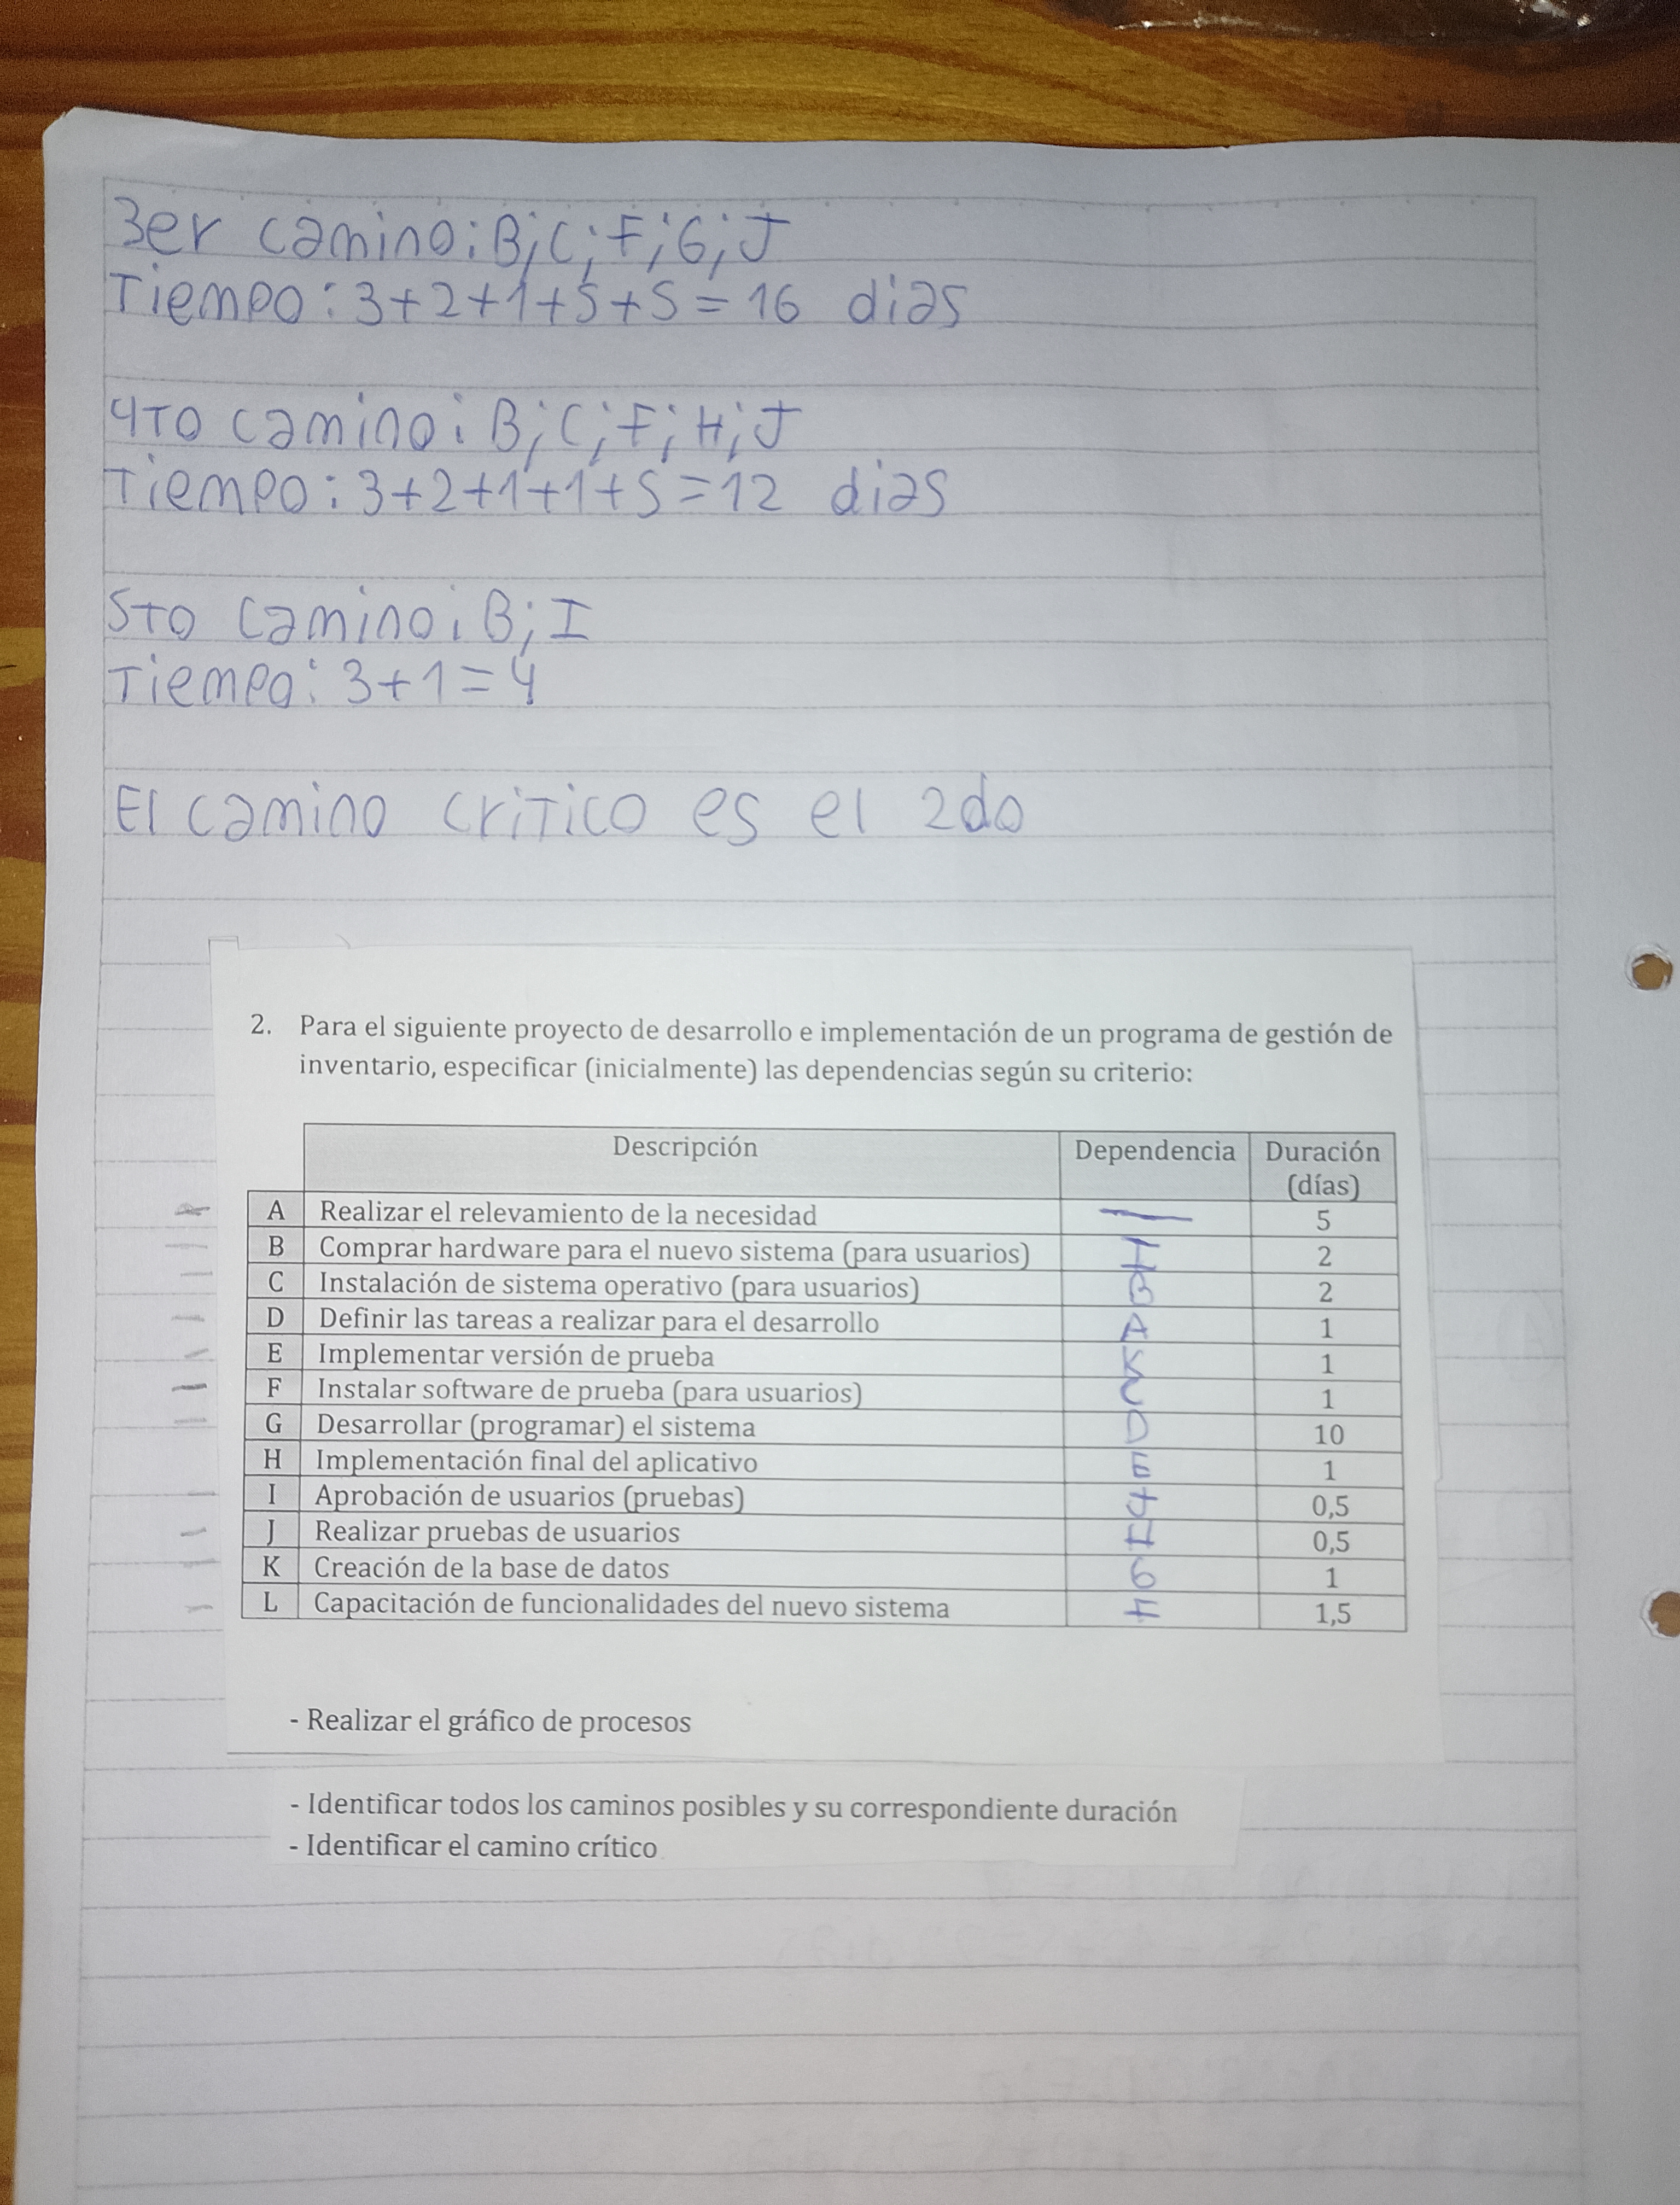 3er camino: B; C; F; G; J
Tiempo: 3+2+1+5+5=16 dias
4to camino: B; C; F; H; J
Tiempo: 3+2+1+1+5=12 dias
5to camino: B; I
Tiempo: 3+1=4
El camino critico es el 2do
2. Para el siguiente proyecto de desarrollo e implementación de un programa de gestión de
inventario, especificar (inicialmente) las dependencias según su criterio:
Descripción Dependencia Duración
(días)
A Realizar el relevamiento de la necesidad — 5
B Comprar hardware para el nuevo sistema (para usuarios) I 2
C Instalación de sistema operativo (para usuarios) B 2
D Definir las tareas a realizar para el desarrollo A 1
E Implementar versión de prueba K 1
F Instalar software de prueba (para usuarios) C 1
G Desarrollar (programar) el sistema D 10
H Implementación final del aplicativo E 1
I Aprobación de usuarios (pruebas) J 0,5
J Realizar pruebas de usuarios H 0,5
K Creación de la base de datos G 1
L Capacitación de funcionalidades del nuevo sistema F 1,5
- Realizar el gráfico de procesos
- Identificar todos los caminos posibles y su correspondiente duración
- Identificar el camino crítico